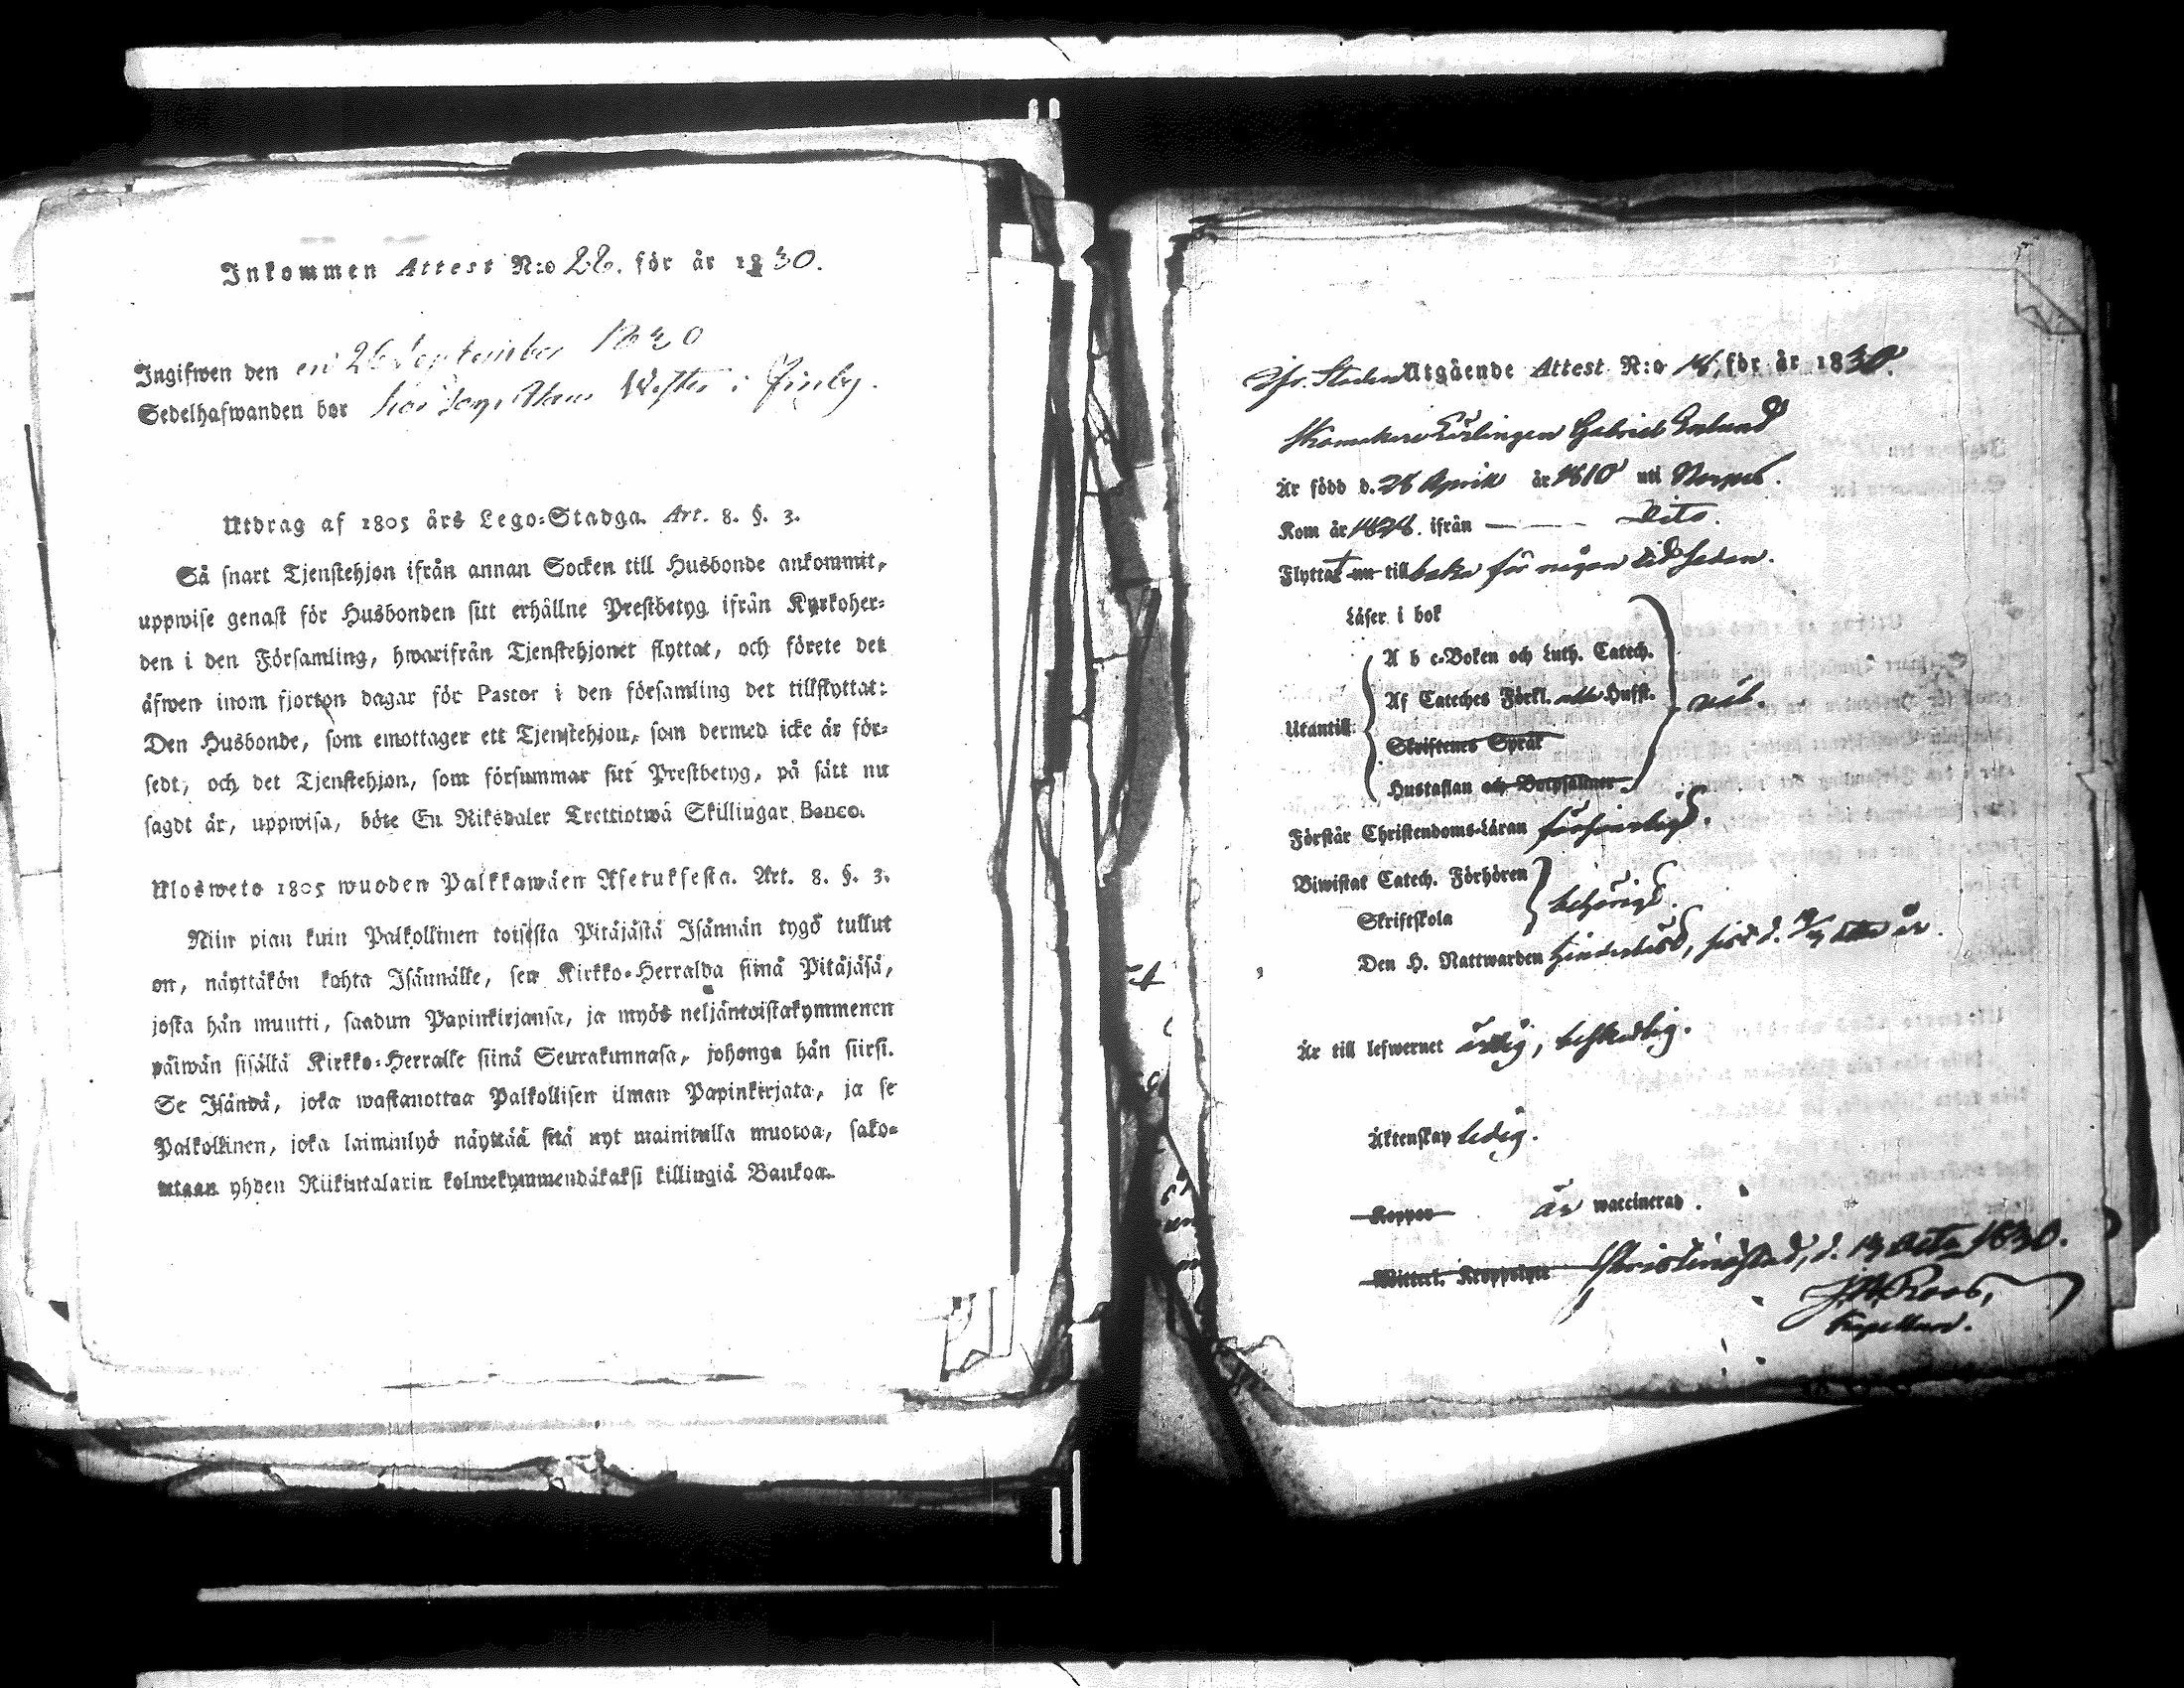 Inkommen Attest N:o 28. för år 1830.
Ingifwen den 26 September 1830
Sedelhafwanden bor hos i
Utdrag af 1805 års Lego-Stadga. Art. 8. §. 3.
Så snart Tjenstehjon ifrån annan Socken till Husbonde ankommit,
uppwise genast för Husbonden sitt erhållne Prestbetyg ifrån Kyrkoher-
den i den Församling, hwarifrån Tjenstehjonet flyttat, och förete det
äfwen inom fjorton dagar för Pastor i den församling det tillflyttat:
Den Husbonde, som emottager ett Tjenstehjon, som dermed icke är för-
sedt, och det Tjenstehjon, som försummar sitt Prestbetyg, på sätt nu
sagdt är, uppwisa, böte En Riksdaler Trettiotwå Skillingar Banco.
Ulosweto 1805 wuoden Palkkawäen Asetuksesta. Art. 8. §. 3.
Niin pian kuin Palkollinen toisesta Pitäjästä Isännän tygö tullut
on, näyttäkön kohta Isännälle, sen Kirkko-Herralda siinä Pitäjäsä,
josta hän muutti, saadun Papinkirjansa, ja myös neljäntoistakymmenen
päiwän sisällä Kirkko-Herralle siinä Seurakunnasa, johonga hän siirsi.
Se Isändä, joka wastanottaa Palkollisen ilman Papinkirjata, ja se
Palkollinen, joka laiminlyö näyttää sitä nyt mainitulla muotoa, sako-
ittaan yhden Riikintalarin kolmekymmendäkaksi killingiä Bankoa.
Utgående Attest N:o 18, för år 1830.
Gabriel
Är född d. 28 April år 1810 uti Nerpes.
Kom år 1828. ifrån — — Dito.
Flyttat nu tillbaka för någon tid sedan.
Läser i bok
A b c-Boken och Luth. Catech.
Af Cateches Förkl. alla Hufst.
Utantill
Skriftenes Språk
Hustaflan och Botpsalmer
väl.
Förstår Christendoms-Läran försvarligt.
Biwistat Catech. Förhören
Skriftskola
behörigt.
Den H. Nattwarden sist d. år.
Är till lefwernet ärlig, beskedlig.
Äktenskap ledig.
Koppor är waccinerad.
Witterl. Kroppslyte
Christinestad, d. 13 Octo. 1830.
Roos,
Kapellan.